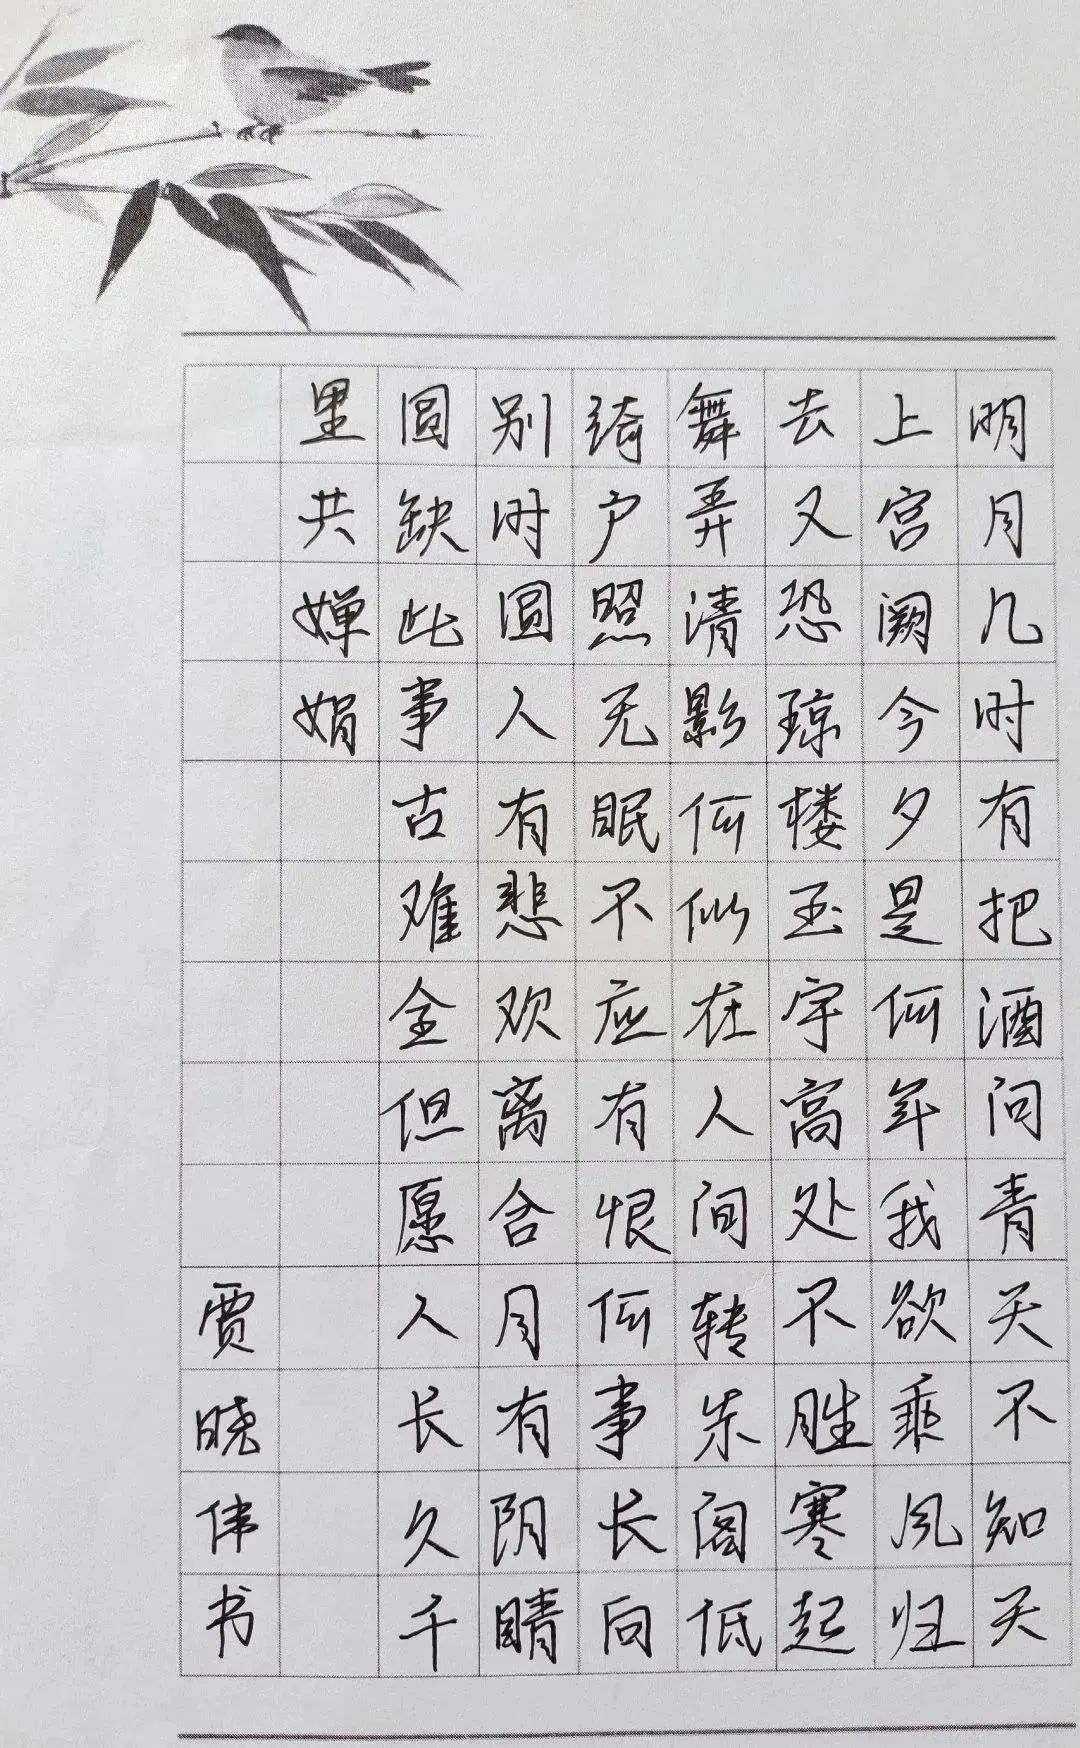 明月几时有把酒问青天不知天
上宫阙今夕是何年我欲乘风归
去又恐琼楼玉宇高处不胜寒起
舞弄清影何似在人间转朱阁低
绮户照无眠不应有恨何事长向
别时圆人有悲欢离合月有阴晴
圆缺此事古难全但愿人长久千
里共婵娟
贾晓伟书